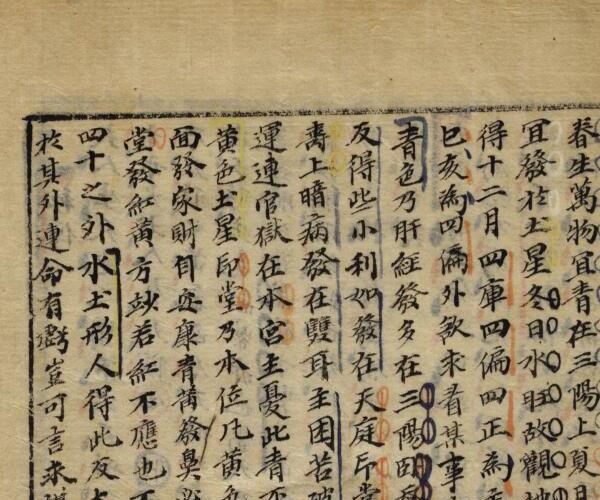 春生萬物冝青在三陽上夏日
冝發扵土星冬日水旺故觀
得十二月四庫四偏四正為
巳亥為四偏外欲求看某事
青色乃肝經發多在三陽卧
反得些小利如發在天庭印堂
夀上暗病發在雙耳主困苦破
運連官獄在本宮主憂此青
黄色土星印堂乃本位凡黄色
面發家財自安康青黄發鼻
堂發紅黄方妙若紅不應也
四十之外水土形人得此反
扵其外連命有虧豈可言來